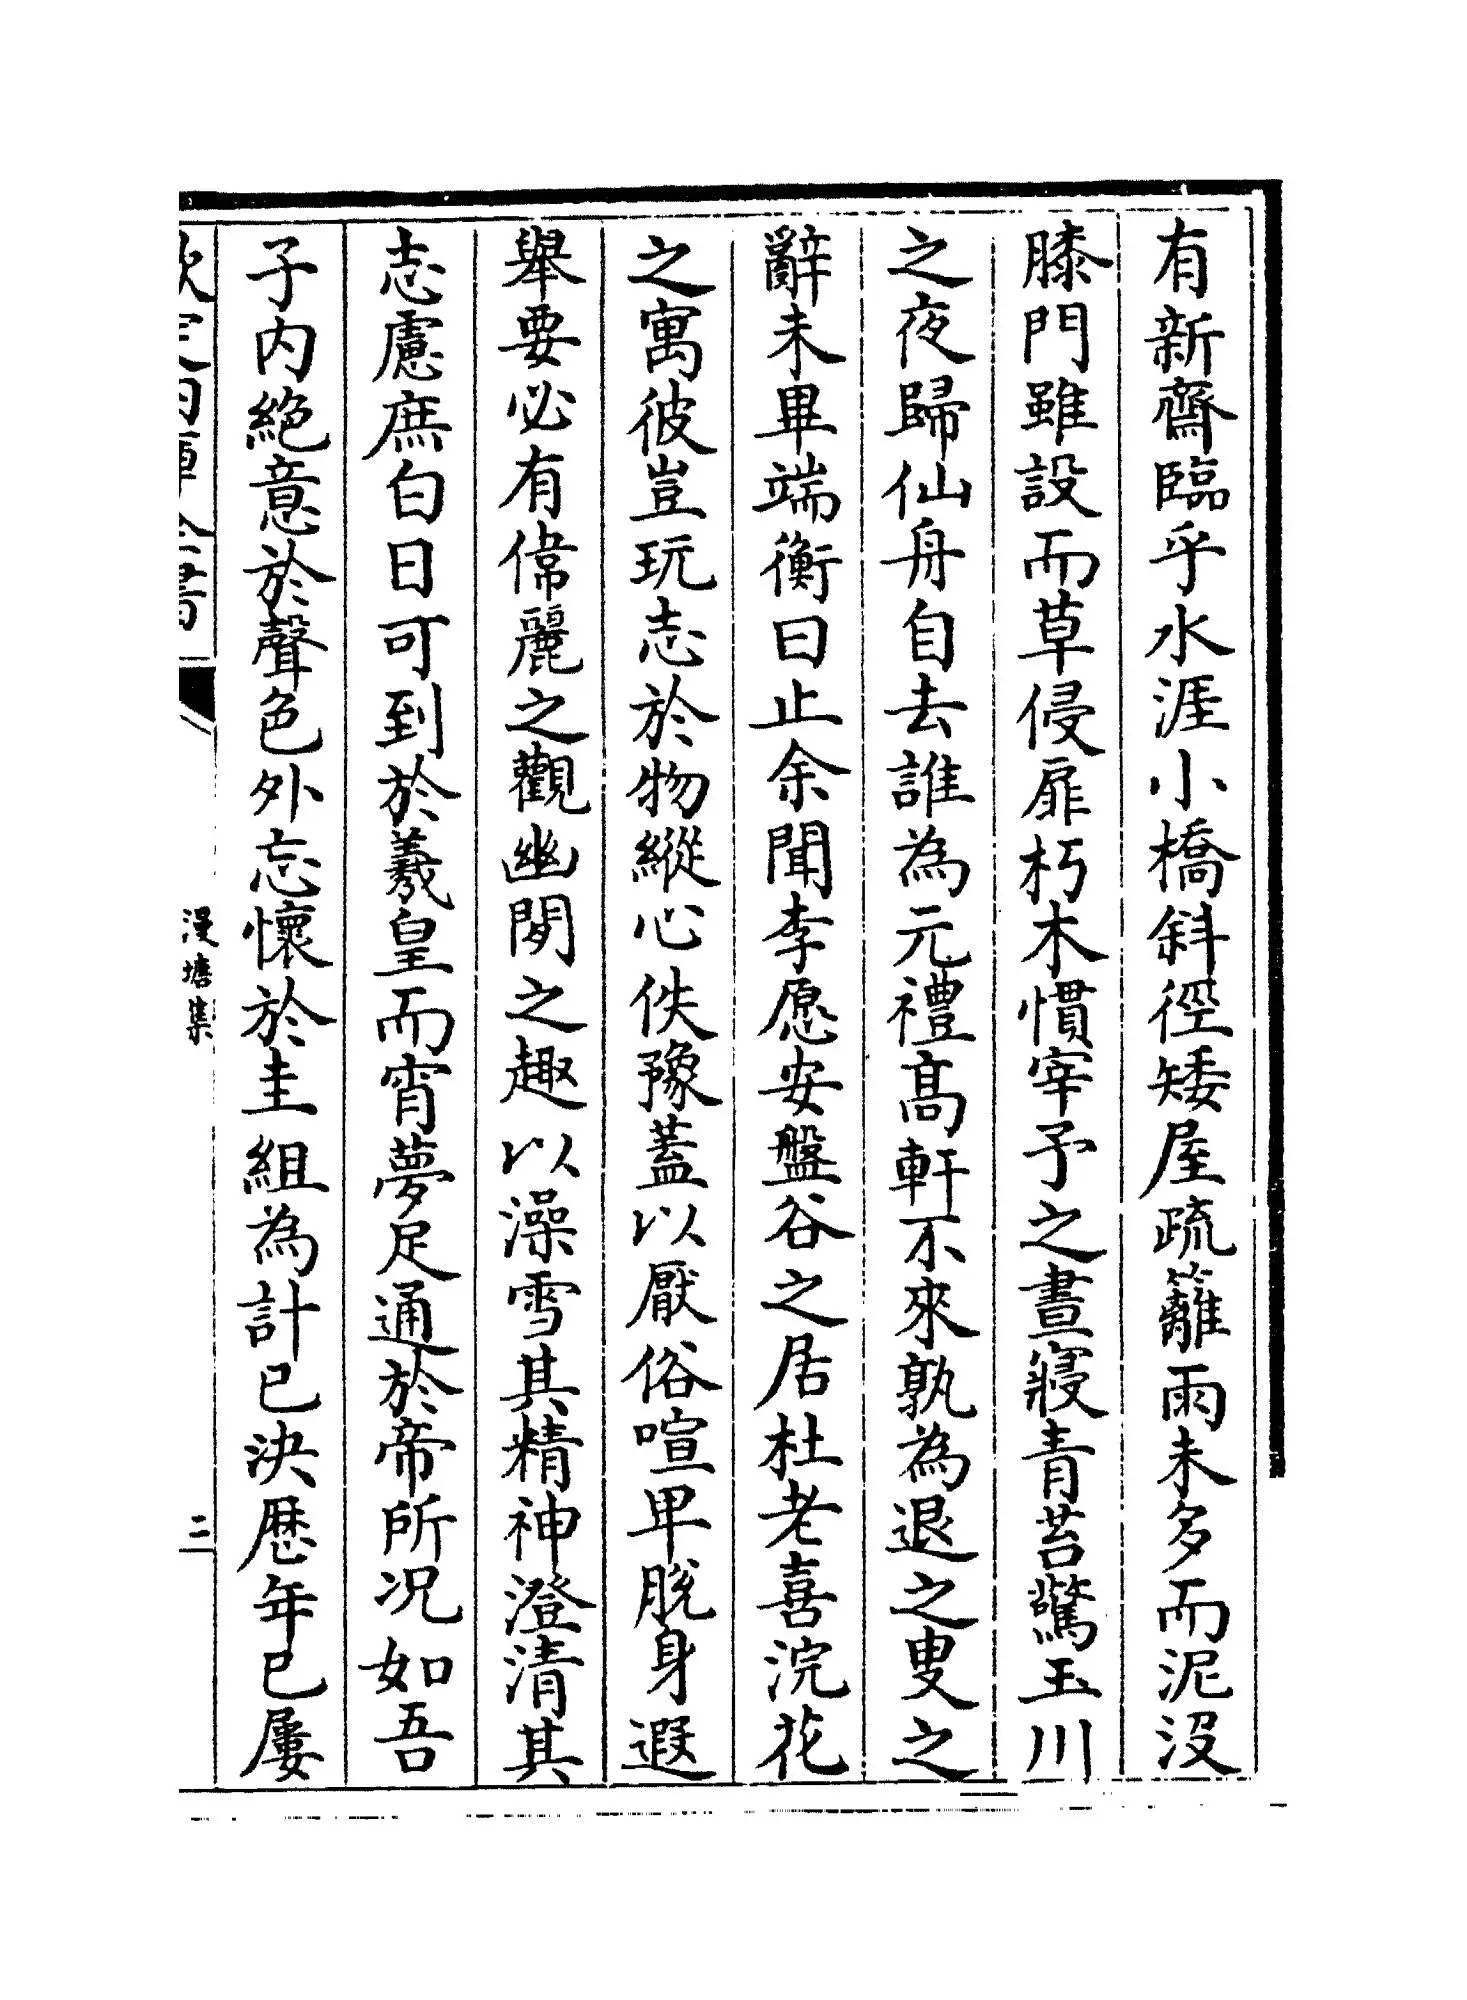 有新齋臨乎水涯小橋斜徑矮屋疏籬雨未多而泥没
膝門雖設而草侵扉朽木慣宰予之晝寢青苔驚玉川
之夜歸仙舟自去誰為元禮髙軒不來孰為退之叟之
辭未畢端衡曰止余聞李愿安盤谷之居杜老喜浣花
之寓彼豈玩志於物縱心佚豫蓋以厭俗喧卑脱身遐
舉要必有偉麗之觀幽閴之趣以澡雪其精神澄清其
志慮庶白日可到於羲皇而宵夢足通於帝所况如吾
子内絶意於聲色外忘懷於圭組為計已決歴年已屢
欽定四庫全書
漫塘集
二